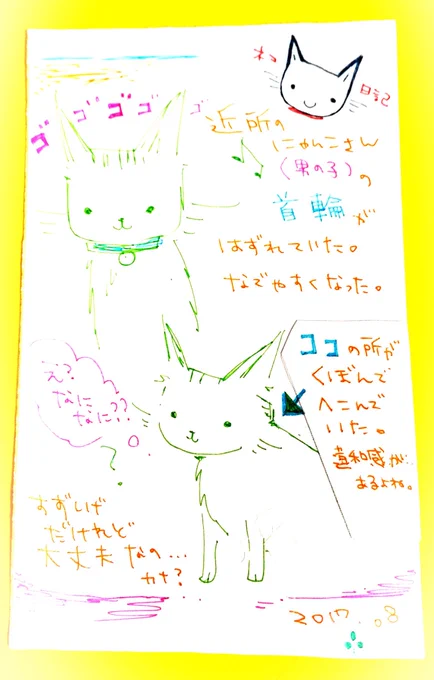 ネコ
日記
ゴゴゴゴゴ
近所の
にゃんこさん
(男の子)の
首輪が
はずれていた。
なでやすくなった。
ココの所が
くぼんで
へこんで
いた。
違和感が
あるよね。
え?
なに
なに??
?
すずしげ
だけれど
大丈夫なの…
カナ?
2017.03